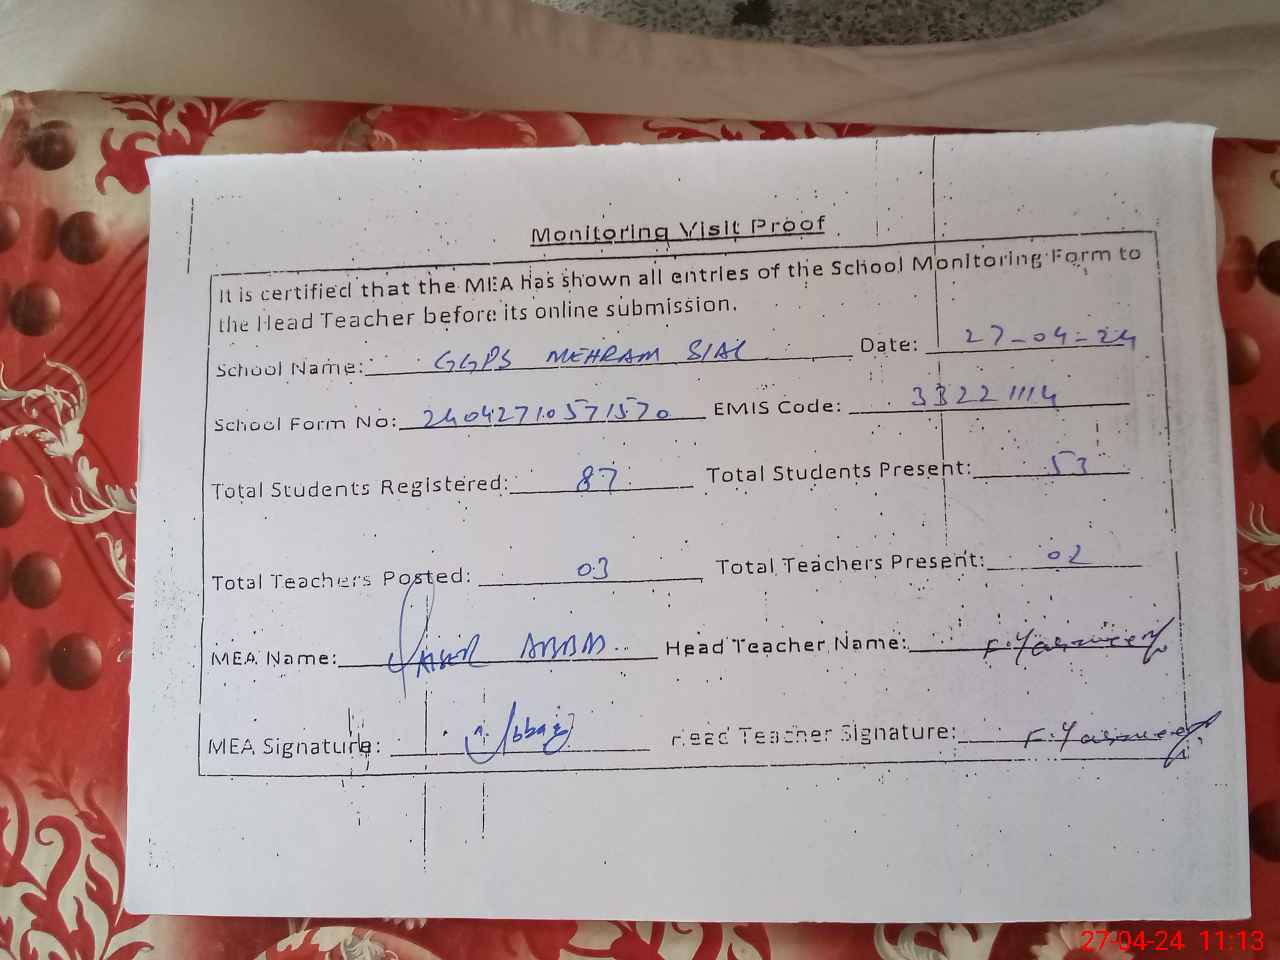 Monitoring Visit Proof
It is certified that the MEA has shown all entries of the School Monitoring Form to
the Head Teacher before its online submission.
School Name: GGPS MEHRAM SIAL Date: 27-04-24
School Form No: 24042710571570 EMIS Code: 33221114
Total Students Registered: 87 Total Students Present: 53
Total Teachers Posted: 03 Total Teachers Present: 02
MEA Name: ABBAS Head Teacher Name: F. Yasmeen
MEA Signature: Abbas Head Teacher Signature: F. Yasmeen
27-04-24 11:13